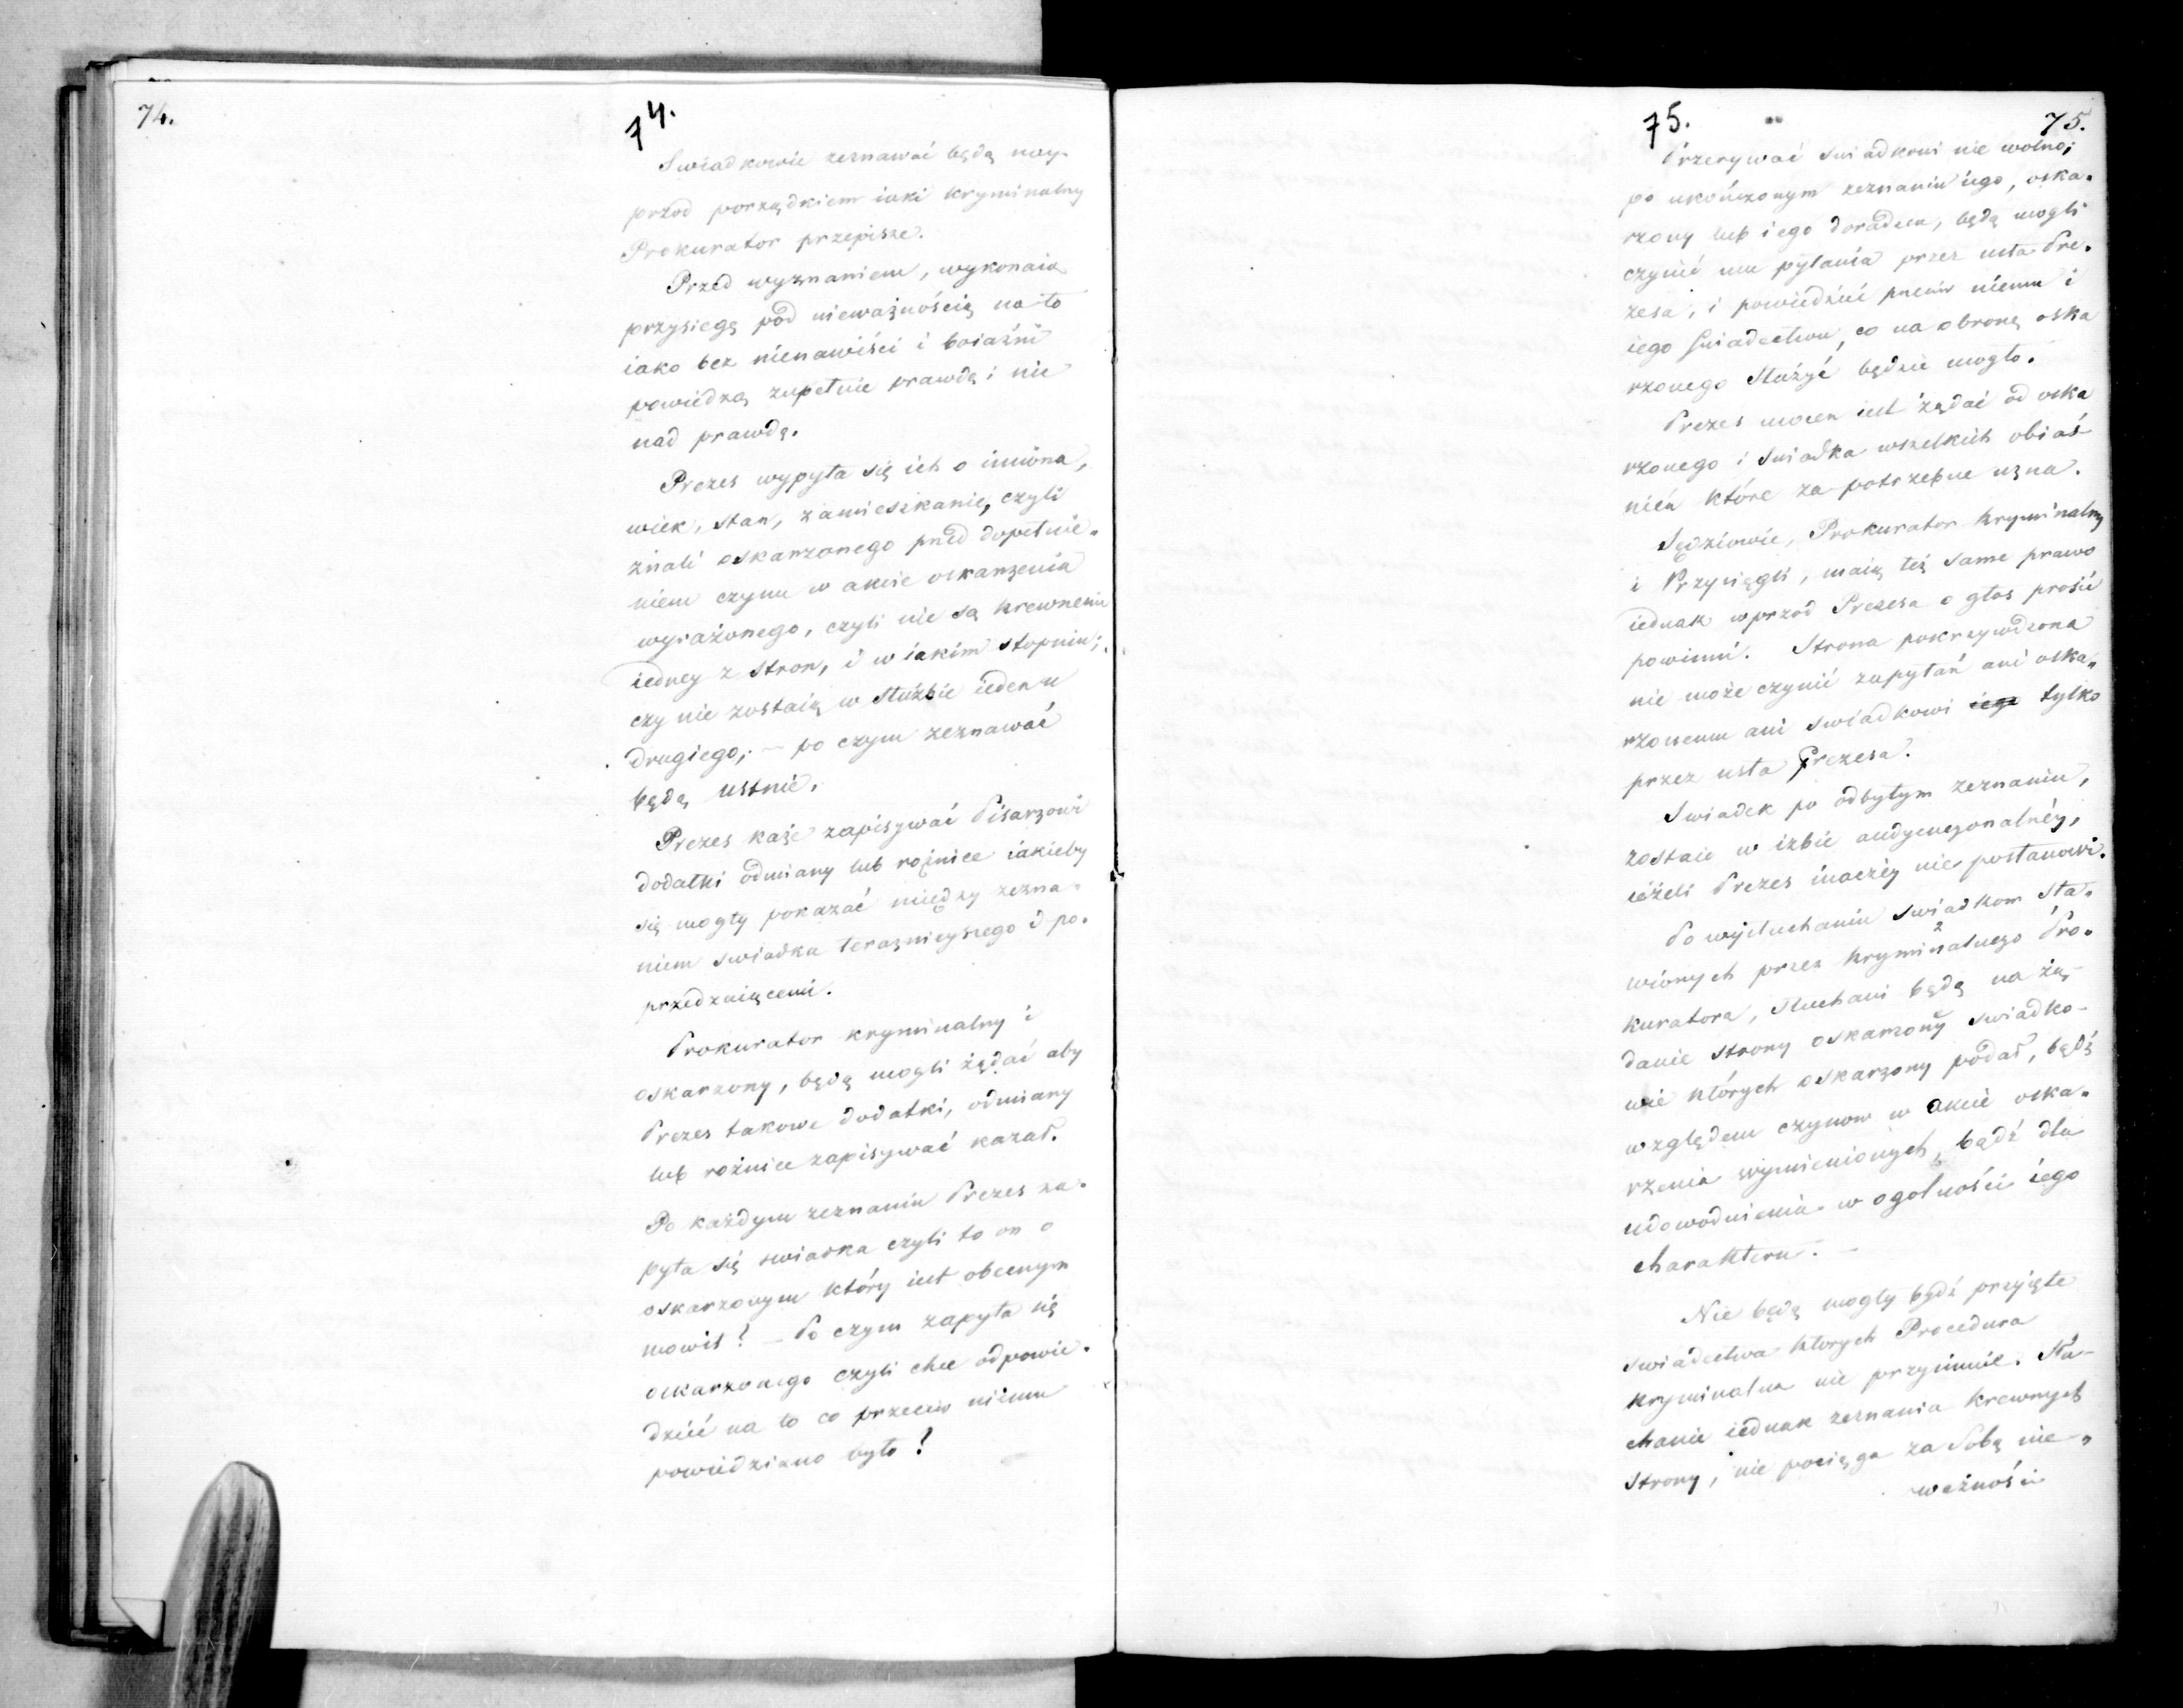 74.
74.
Swiadkowie zeznawać będą nay-
przod porządkiem iaki kryminalny
Prokurator przepisze.
Przed wyznaniem, wykonaią
przysięgę pod nieważnością na to
iako bez nienawiści i boiaźni
powiedzą zupełnie prawdę i nic
nad prawdę.
Prezes wypyta się ich o imiona,
wiek, stan, zamieszkanie, czyli
znali oskarzonego przed dopełnie-
niem czynu w akcie oskarzenia
wyrażonego, czyli nie są krewnemi
iedney z stron, i w iakim stopniu;
czy nie zostaią w służbie ieden u
drugiego; – po czym zeznawać
będą ustnie.
Prezes każe zapisywać Pisarzowi
dodatki odmiany lub rożnice iakieby
się mogły pokazać między zezna-
niem swiadka teraznieyszego i po-
przedzaiącemi.
Prokurator kryminalny i
oskarzony, będą mogli żądać aby
Prezes takowe dodatki, odmiany
lub rożnice zapisywać kazał.
Po każdym zeznaniu Prezes za-
pyta się swiadka czyli to on o
oskarzonym który iest obecnym
mowił? – Po czym zapyta się
oskarzonego czyli chce odpowie-
dzić na to co przeciw niemu
powiedziano było?
75.
75.
Przerywać swiadkowi nie wolno;
po ukończonym zeznaniu iego, oska-
rzony lub iego doradca, będą mogli
czynić mu pytania przez usta Pre-
zesa, i powiedzieć przeciw niemu i
iego swiadectwu, co na obronę oska
rzonego służyć będzie mogło.
Prezes mocen iest żądać od oska
rzonego i swiadka wszelkich obiaś-
nień które za potrzebne uzna.
Sędziowie, Prokurator kryminalny
i Przysięgli, maią też same prawo
iednak wprzod Prezesa o głos prosić
powinni. Strona pokrzywdzona
nie może czynić zapytań ani oska-
rzonemu ani swiadkowi iego tylko
przez usta Prezesa.
Swiadek po odbytym zeznaniu,
zostaie w izbie audyencyonalnéy,
ieżeli Prezes inaczéy nie postanowi.
Po wysłuchaniu swiadkow sta-
wionych przez kryminalnego Pro-
kuratora, słuchani będą na żą-
danie strony oskarzonéy swiadko-
wie których oskarzony podał, bądź
względem czynow w akcie oska-
rzenia wymienionych, bądź dla
udowodnienia w ogolności iego
charakteru. –
Nie będą mogły bydź przyięte
swiadectwa ktorych Procedura
kryminalna nie przyimuie. Słu-
chanie iednak zeznania krewnych
strony, nie pociąga za sobą nie-
ważności